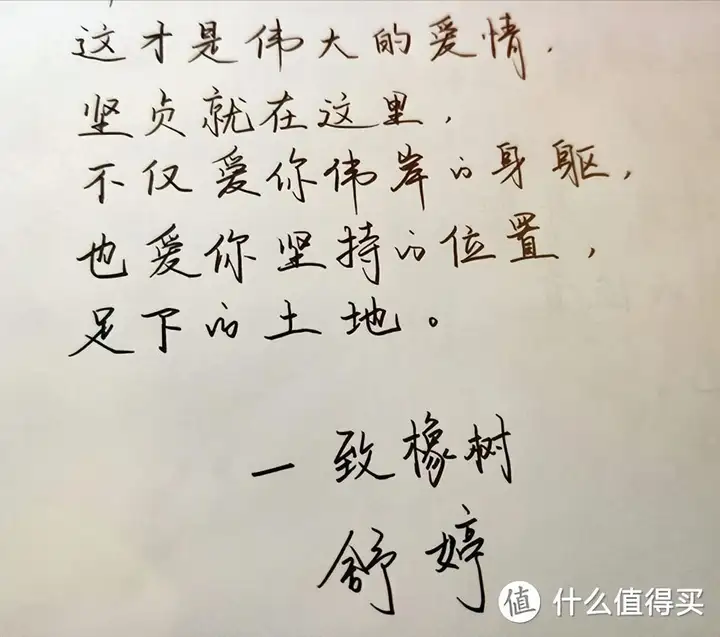 这才是伟大的爱情，
坚贞就在这里，
不仅爱你伟岸的身躯，
也爱你坚持的位置，
足下的土地。
一致橡树
舒婷
值 什么值得买